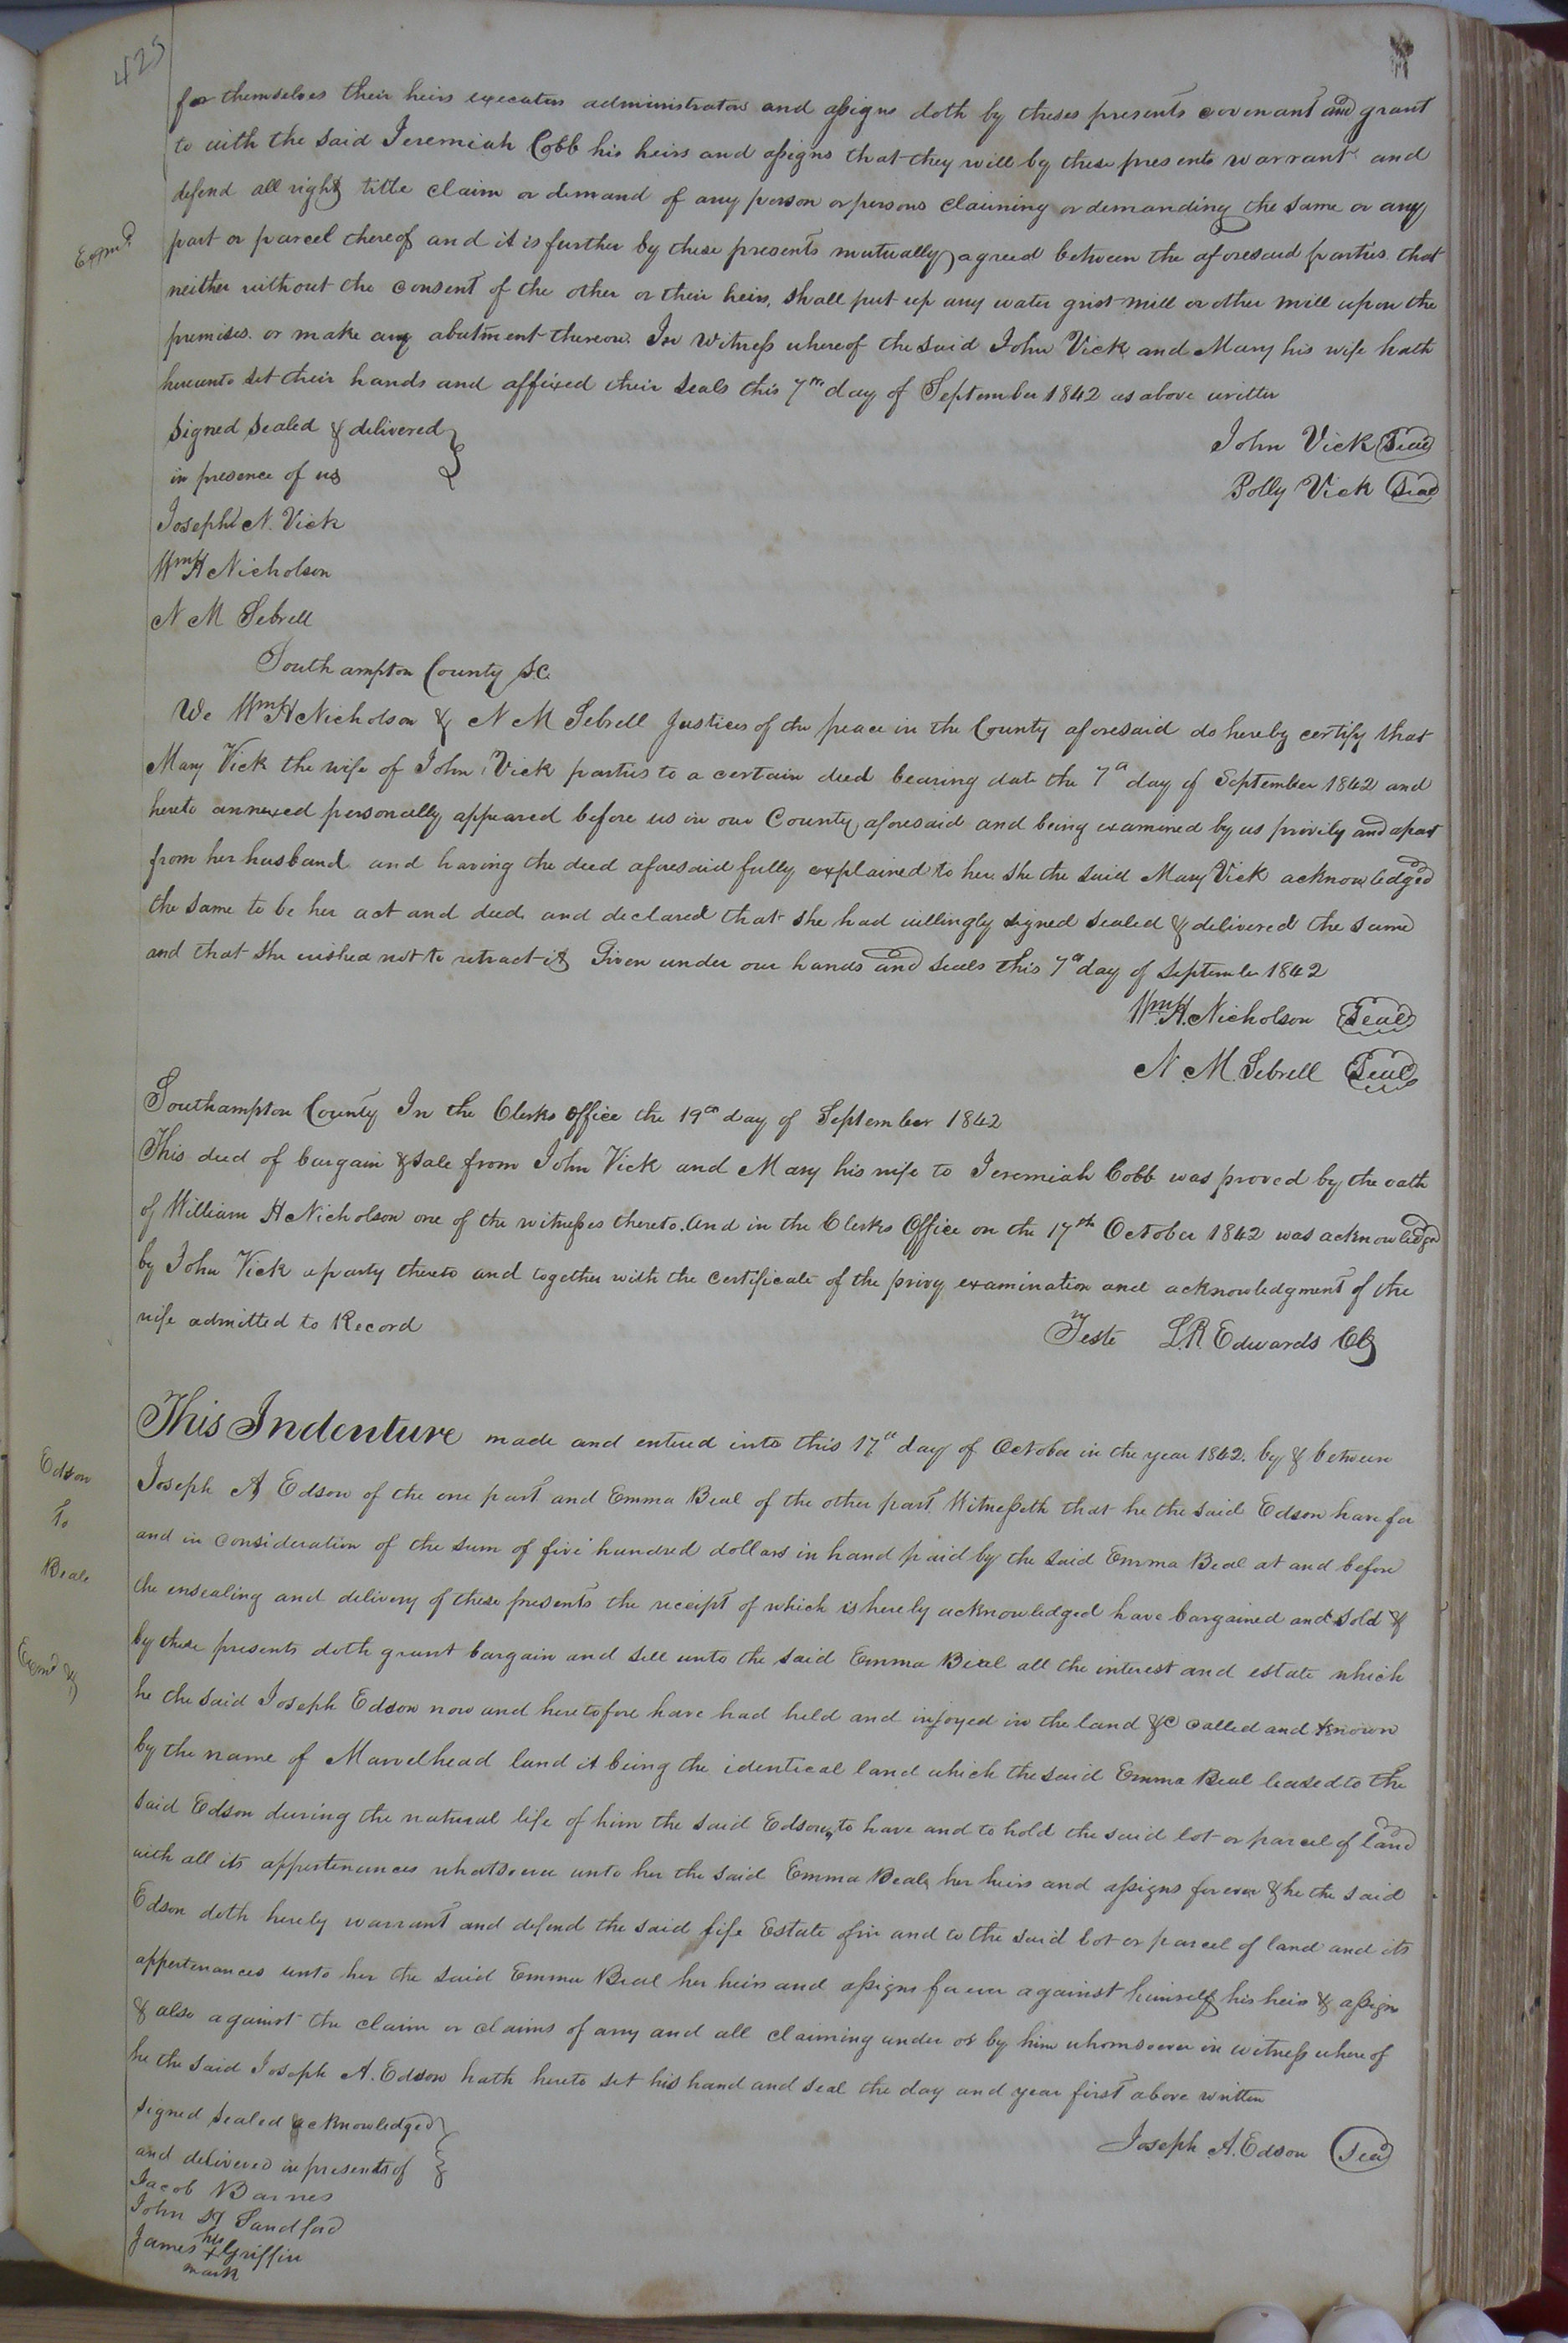 425
for themselves their heirs executors administrators and assigns doth by theses presents covenant and grant
to with the said Jeremiah Cobb his heirs and assigns that they will by these presents warrant and
defend all right title claim or demand of any person or persons claiming or demanding the same or any
Exm.d
part or parcel thereof and it is further by these presents mutually agreed between the aforesaid parties that
neither without the consent of the other or their heirs, shall put up any water grist mill or other mill upon the
premises. or make any abutment thereon. In Witness whereof the said John Vick and Mary his wife hath
hereunto set their hands and affixed their seals this 7th day of September 1842 as above written
Signed sealed & delivered
in presence of us
John Vick Seal
Polly Vick Seal
Joseph N. Vick
Wm H Nicholson
N M Sebrell
Southampton County S.C.
We Wm H Nicholson & N M Sebrell Justices of the peace in the County aforesaid do hereby certify that
Mary Vick the wife of John Vick parties to a certain deed bearing date the 7th day of September 1842 and
hereto annexed personally appeared before us in our County aforesaid and being examined by us privily and apart
from her husband and having the deed aforesaid fully explained to her she the said Mary Vick acknowledged
the same to be her act and deed and declared that she had willingly signed sealed & delivered the same
and that she wished not to retract it Given under our hands and seals this 7th day of September 1842
Wm H. Nicholson Seal
N. M. Sebrell Seal
Southampton County In the Clerks Office the 19th day of September 1842
This deed of bargain & sale from John Vick and Mary his wife to Jeremiah Cobb was proved by the oath
of William H Nicholson one of the witnesses thereto. And in the Clerks Office on the 17th October 1842 was acknowledged
by John Vick a party thereto and together with the certificate of the privy examination and acknowledgment of the
wife admitted to Record
Teste L.R. Edwards Clk
This Indenture made and entered into this 17th day of October in the year 1842. by & between
Edson
To
Beale
Exmd
Joseph A Edson of the one part and Emma Beal of the other part Witnesseth that he the said Edson have for
and in consideration of the sum of five hundred dollars in hand paid by the said Emma Beal at and before
the ensealing and delivery of these presents the receipt of which is hereby acknowledged have bargained and sold &
by these presents doth grant bargain and sell unto the said Emma Beal all the interest and estate which
he the said Joseph Edson now and heretofore have had held and injoyed in the land &c called and known
by the name of Marvelhead land it being the identical land which the said Emma Beal leased to the
said Edson during the natural life of him the said Edson, to have and to hold the said lot or parcel of land
with all its appertenances whatsoever unto her the said Emma Beal, her heirs and assigns forever & he the said
Edson doth hereby warrant and defend the said life Estate of in and to the said lot or parcel of land and its
appertenances unto her the said Emma Beal her heirs and assigns forever against himself his heirs & assigns
& also against the claim or claims of any and all claiming under or by him whomsoever in witness whereof
he the said Joseph A. Edson hath hereto set his hand and seal the day and year first above written
Signed sealed acknowledged
and delivered in presents of
Joseph A. Edson Seal
Jacob Barnes
John Sandford
his
James + Griffin
mark